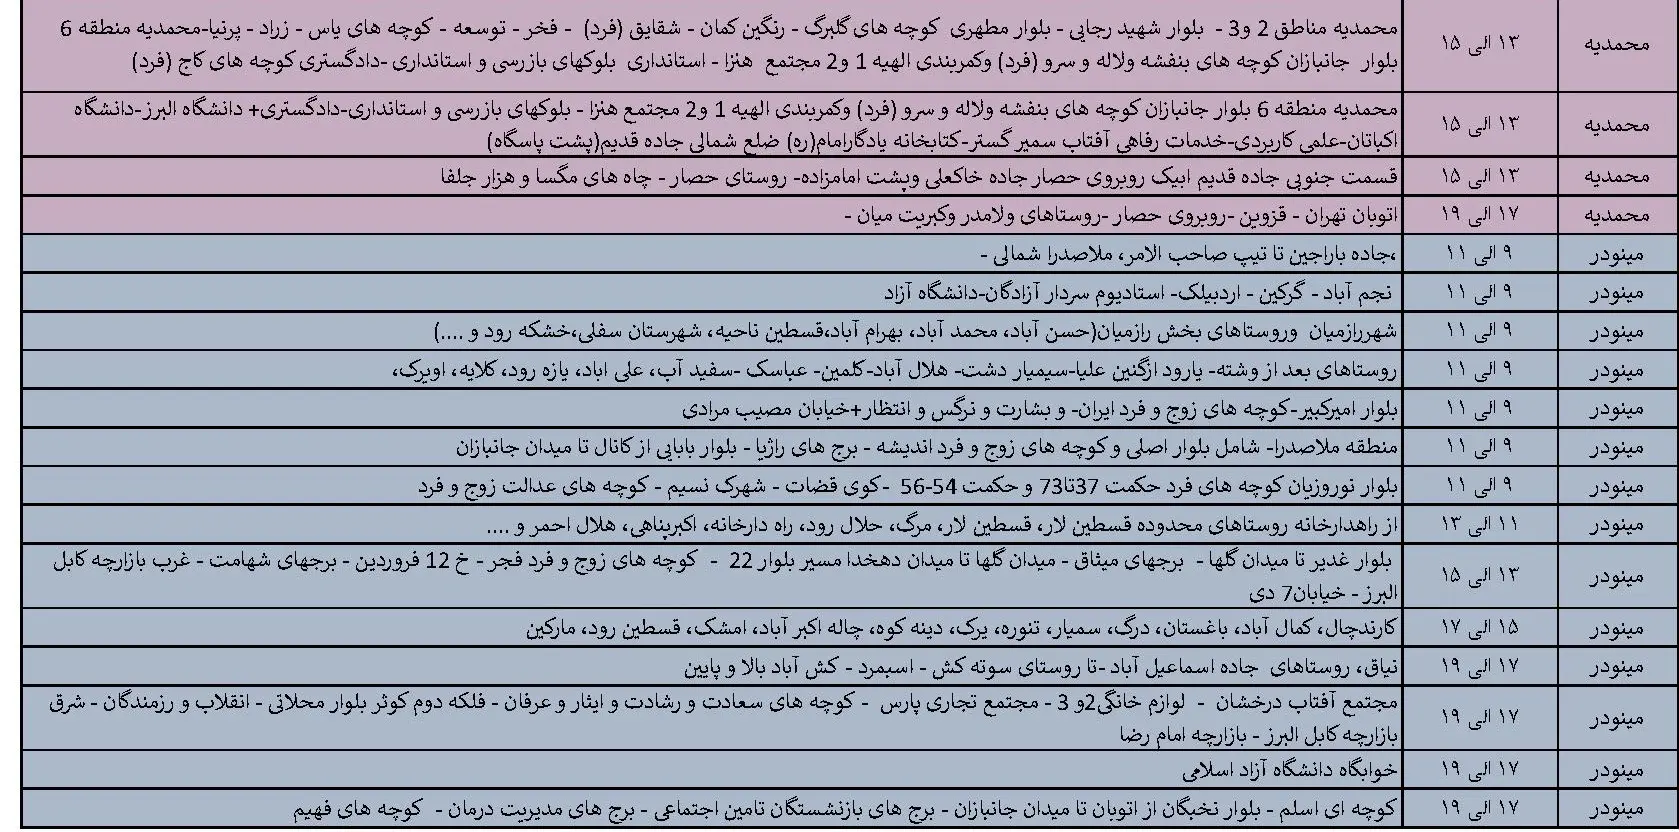 محمدیه ۱۳ الی ۱۵ محمدیه مناطق 2 و3 - بلوار شهید رجایی - بلوار مطهری کوچه های گلبرگ - رنگین کمان - شقایق (فرد) - فخر - توسعه - کوچه های یاس - زراد - پرنیا-محمدیه منطقه 6
بلوار جانبازان کوچه های بنفشه ولاله و سرو (فرد) وکمربندی الهیه 1 و2 مجتمع هنزا - استانداری بلوکهای بازرسی و استانداری -دادگستری کوچه های کاج (فرد)
محمدیه ۱۳ الی ۱۵ محمدیه منطقه 6 بلوار جانبازان کوچه های بنفشه ولاله و سرو (فرد) وکمربندی الهیه 1 و2 مجتمع هنزا - بلوکهای بازرسی و استانداری-دادگستری+ دانشگاه البرز-دانشگاه
اکباتان-علمی کاربردی-خدمات رفاهی آفتاب سمیر گستر-کتابخانه یادگارامام(ره) ضلع شمالی جاده قدیم(پشت پاسگاه)
محمدیه ۱۳ الی ۱۵ قسمت جنوبی جاده قدیم ابیک روبروی حصار جاده خاکعلی وپشت امامزاده- روستای حصار - چاه های مگسا و هزار جلفا
محمدیه ۱۷ الی ۱۹ اتوبان تهران - قزوین -روبروی حصار -روستاهای ولامدر وکبریت میان -
مینودر ۹ الی ۱۱ ،جاده باراجین تا تیپ صاحب الامر، ملاصدرا شمالی -
مینودر ۹ الی ۱۱ نجم آباد - گرکین - اردبیلک- استادیوم سردار آزادگان-دانشگاه آزاد
مینودر ۹ الی ۱۱ شهررازمیان وروستاهای بخش رازمیان(حسن آباد، محمد آباد، بهرام آباد،قسطین ناحیه، شهرستان سفلی،خشکه رود و ....)
مینودر ۹ الی ۱۱ روستاهای بعد از وشته- یارود ازگنین علیا-سیمیار دشت- هلال آباد-کلمین- عباسک -سفید آب، علی اباد، یازه رود، کلایه، اویرک،
مینودر ۹ الی ۱۱ بلوار امیرکبیر-کوچه های زوج و فرد ایران- و بشارت و نرگس و انتظار+خیابان مصیب مرادی
مینودر ۹ الی ۱۱ منطقه ملاصدرا- شامل بلوار اصلی و کوچه های زوج و فرد اندیشه - برج های راژیا - بلوار بابایی از کانال تا میدان جانبازان
مینودر ۹ الی ۱۱ بلوار نوروزیان کوچه های فرد حکمت 37تا73 و حکمت 54-56 -کوی قضات - شهرک نسیم - کوچه های عدالت زوج و فرد
مینودر ۱۱ الی ۱۳ از راهدارخانه روستاهای محدوده قسطین لار، قسطین لار، مرگ، حلال رود، راه دارخانه، اکبرپناهی، هلال احمر و ....
مینودر ۱۳ الی ۱۵ بلوار غدیر تا میدان گلها - برجهای میثاق - میدان گلها تا میدان دهخدا مسیر بلوار 22 - کوچه های زوج و فرد فجر - خ 12 فروردین - برجهای شهامت - غرب بازارچه کابل
البرز - خیابان7 دی
مینودر ۱۵ الی ۱۷ کارندچال، کمال آباد، باغستان، درگ، سمیار، تنوره، یرک، دینه کوه، چاله اکبر آباد، امشک، قسطین رود، مارکین
مینودر ۱۷ الی ۱۹ نیاق، روستاهای جاده اسماعیل آباد -تا روستای سوته کش - اسبمرد - کش آباد بالا و پایین
مینودر ۱۷ الی ۱۹ مجتمع آفتاب درخشان - لوازم خانگی2و 3 - مجتمع تجاری پارس - کوچه های سعادت و رشادت و ایثار و عرفان - فلکه دوم کوثر بلوار محلاتی - انقلاب و رزمندگان - شرق
بازارچه کابل البرز - بازارچه امام رضا
مینودر ۱۷ الی ۱۹ خوابگاه دانشگاه آزاد اسلامی
مینودر ۱۷ الی ۱۹ کوچه ای اسلم - بلوار نخبگان از اتوبان تا میدان جانبازان - برج های بازنشستگان تامین اجتماعی - برج های مدیریت درمان - کوچه های فهیم